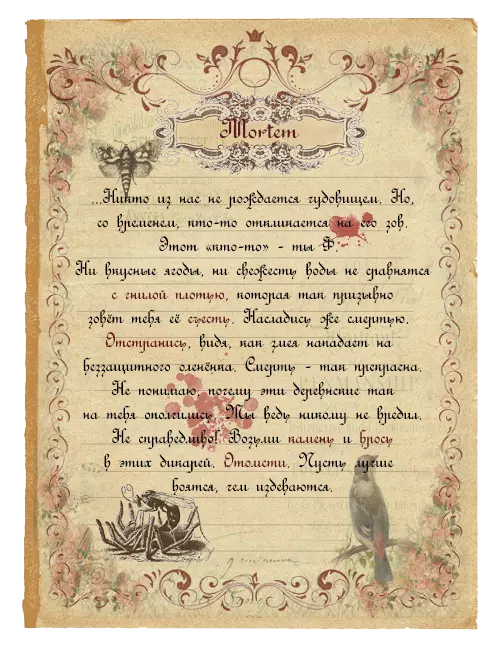 Mortem
...Никто из нас не рождается чудовищем. Но,
со временем, кто-то откликается на его зов.
Этот «кто-то» - ты Ф.
Ни вкусные ягоды, ни свежесть воды не сравнятся
с гнилой плотью, которая так призывно
зовёт тебя её съесть. Насладись же смертью.
Отстранись, видя, как змея нападает на
беззащитного оленёнка. Смерть - так прекрасна.
Не понимаю, почему эти деревенские так
на тебя ополчились. Ты ведь никому не вредил.
Не справедливо! Возьми камень и брось
в этих дикарей. Отомсти. Пусть лучше
боятся, чем издеваются.